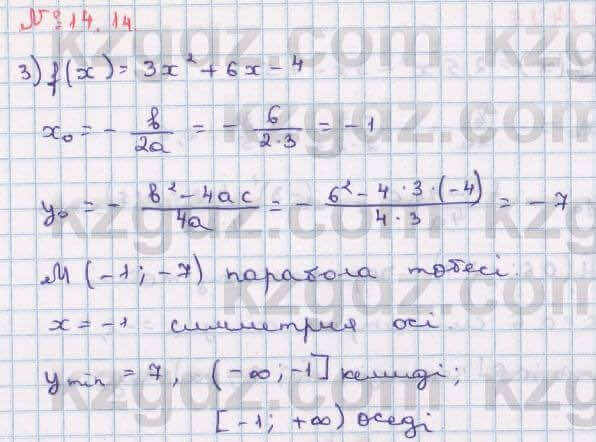 № 14.14
3) f(x) = 3x² + 6x - 4
x₀ = - b/2a = - 6/2·3 = -1
y₀ = - b² - 4ac/4a = - 6² - 4·3·(-4)/4·3 = -7
M (-1; -7) парабола төбесі.
x = -1 симметрия осі.
y min = 7, (-∞; -1] кемиді;
[-1; +∞) өседі.
kzgdz.com